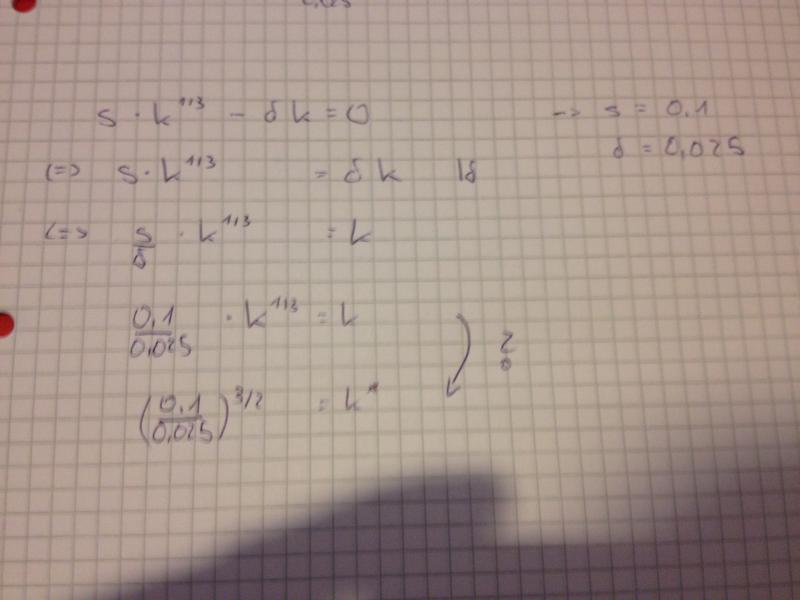 s · k^1/3 - δk = 0 -> s = 0.1
δ = 0,025
(=> s · k^1/3 = δ k |δ
<=> s/δ · k^1/3 = k
0,1/0,025 · k^1/3 = k
?
(0.1/0,025)^3/2 = k*